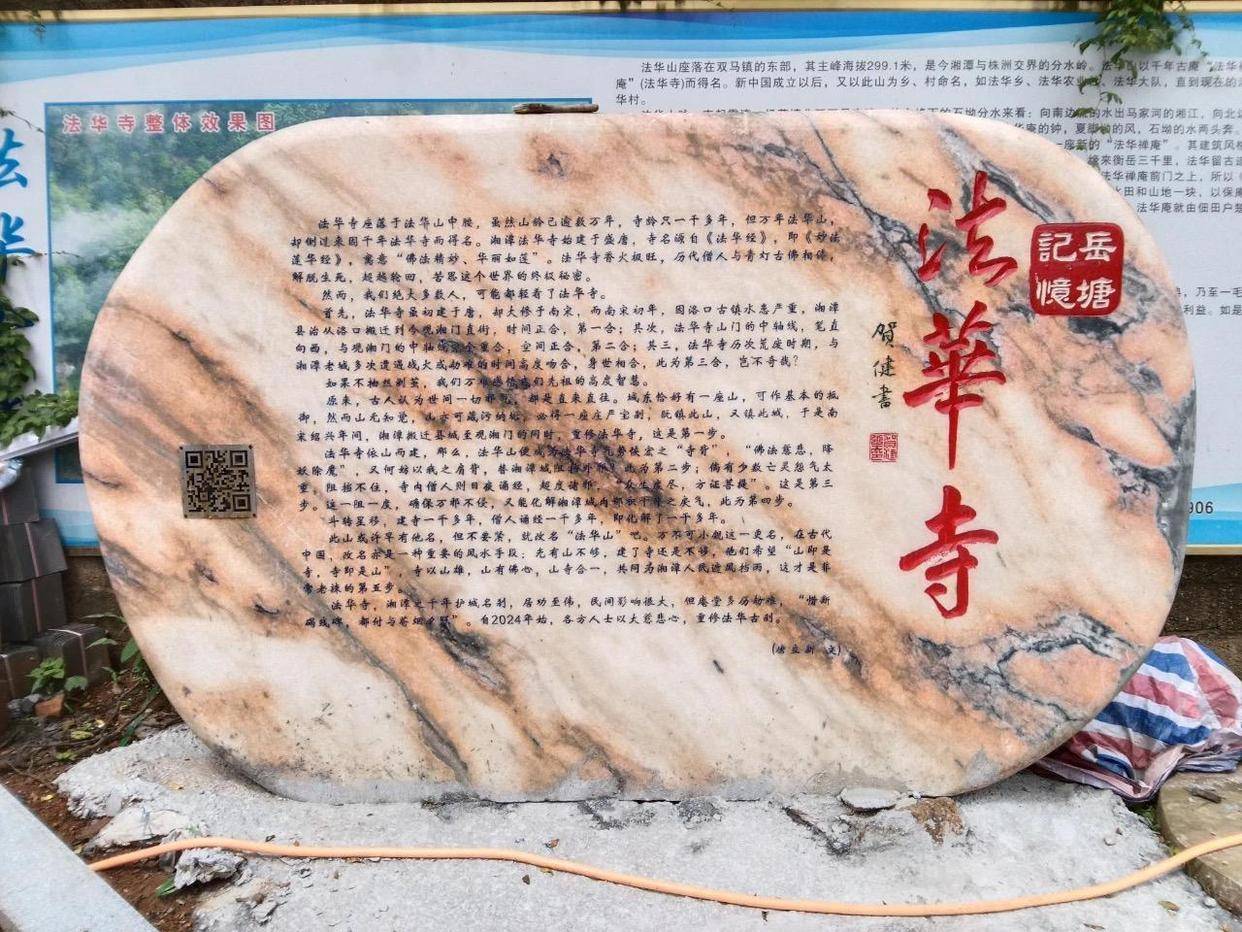 法华山座落在双马镇的东部，其主峰海拔299.1米，是今湘潭与株洲交界的分水岭。法华山以千年古庵“法华禅
庵”(法华寺)而得名。新中国成立以后，又以此山为乡、村命名，如法华乡、法华农业社、法华大队，直到现在的法
华村。
石坳分水来看：向南边流的水出马家河的湘江，向北边
庵的钟，夏脚坳的风，石坳的水两头奔。
座新的“法华禅庵”。其建筑风格
缘来衡岳三千里，法华留古道
法华禅庵前门之上，所以《
水田和山地一块，以保庵
法华庵就由佃田户楚
乃至一毛
利益。如是
906
法华寺整体效果图
法华
岳塘
記憶
法華寺
贺健書
法华寺座落于法华山中腰，虽然山龄已逾数万年，寺龄只一千多年，但万年法华山，
却倒过来因千年法华寺而得名。湘潭法华寺始建于盛唐，寺名源自《法华经》，即《妙法
莲华经》，寓意“佛法精妙、华丽如莲”。法华寺香火极旺，历代僧人与青灯古佛相伴，
解脱生死，超越轮回，苦思这个世界的终极秘密。
然而，我们绝大多数人，可能都轻看了法华寺。
首先，法华寺虽初建于唐，却大修于南宋，而南宋初年，因洛口古镇水患严重，湘潭
县治从洛口搬迁到今观湘门直街，时间正合，第一合；其次，法华寺山门的中轴线，笔直
向西，与观湘门的中轴线完全重合，空间正合，第二合；其三，法华寺历次荒废时期，与
湘潭老城多次遭遇战火或劫难的时间高度吻合，身世相合，此为第三合，岂不奇哉？
如果不抽丝剥茧，我们万难感悟我们先祖的高度智慧。
原来，古人认为世间一切邪祟，都是直来直往。城东恰好有一座山，可作基本的抵
御，然而山无知觉，山亦可藏污纳垢，必得一座庄严宝刹，既镇此山，又镇此城，于是南
宋绍兴年间，湘潭搬迁县城至观湘门的同时，重修法华寺，这是第一步。
法华寺依山而建，那么，法华山便成为法华寺气势恢宏之“寺背”，“佛法慈悲，降
妖除魔”，又何妨以我之肩背，替湘潭城阻挡外邪？此为第二步；倘有少数亡灵怨气太
重，阻挡不住，寺内僧人则日夜诵经，超度诸邪，“众生度尽，方证菩提”。这是第三
步。这一阻一度，确保万邪不侵，又能化解湘潭城内部积千年之戾气，此为第四步。
斗转星移，建寺一千多年，僧人诵经一千多年，即化解了一千多年。
此山或许早有他名，但不要紧，就改名“法华山”吧。万不可小觑这一更名，在古代
中国，改名亦是一种重要的风水手段；先有山不够，建了寺还是不够，他们希望“山即是
寺，寺即是山”，寺以山雄，山有佛心，山寺合一，共同为湘潭人民遮风挡雨，这才是非
常老辣的第五步。
法华寺，湘潭之千年护城名刹，居功至伟，民间影响很大，但庵堂多历劫难，“惜断
碣残碑，都付与苍烟夕照”。自2024年始，各方人士以大慈悲心，重修法华古刹。
立新 文)